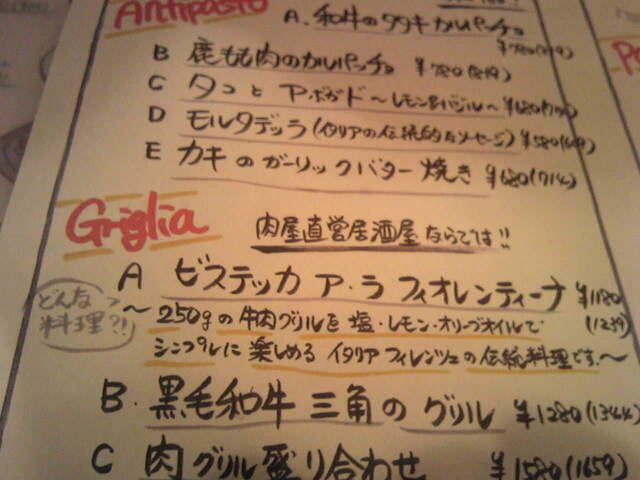 Antipasto
A. 和牛のタタキ カルパッチョ
¥780(819)
B 鹿もも肉のカルパッチョ ¥780(819)
C タコとアボガド ～レモン&バジル～ ¥680(714)
D モルタデッラ(イタリアの伝統的なソーセージ) ¥580(609)
E カキのガーリックバター焼き ¥680(714)
Griglia 肉屋直営居酒屋ならでは!!
A ビステッカ ア・ラ フィオレンティーナ ¥1180
(1239)
どんな
料理?!
～250gの牛肉グリルを塩・レモン・オリーブオイルで
シンプルに楽しめるイタリアフィレンツェの伝統料理です。～
B. 黒毛和牛 三角のグリル ¥1280(1344)
C 肉グリル盛り合わせ ¥1580(1659)